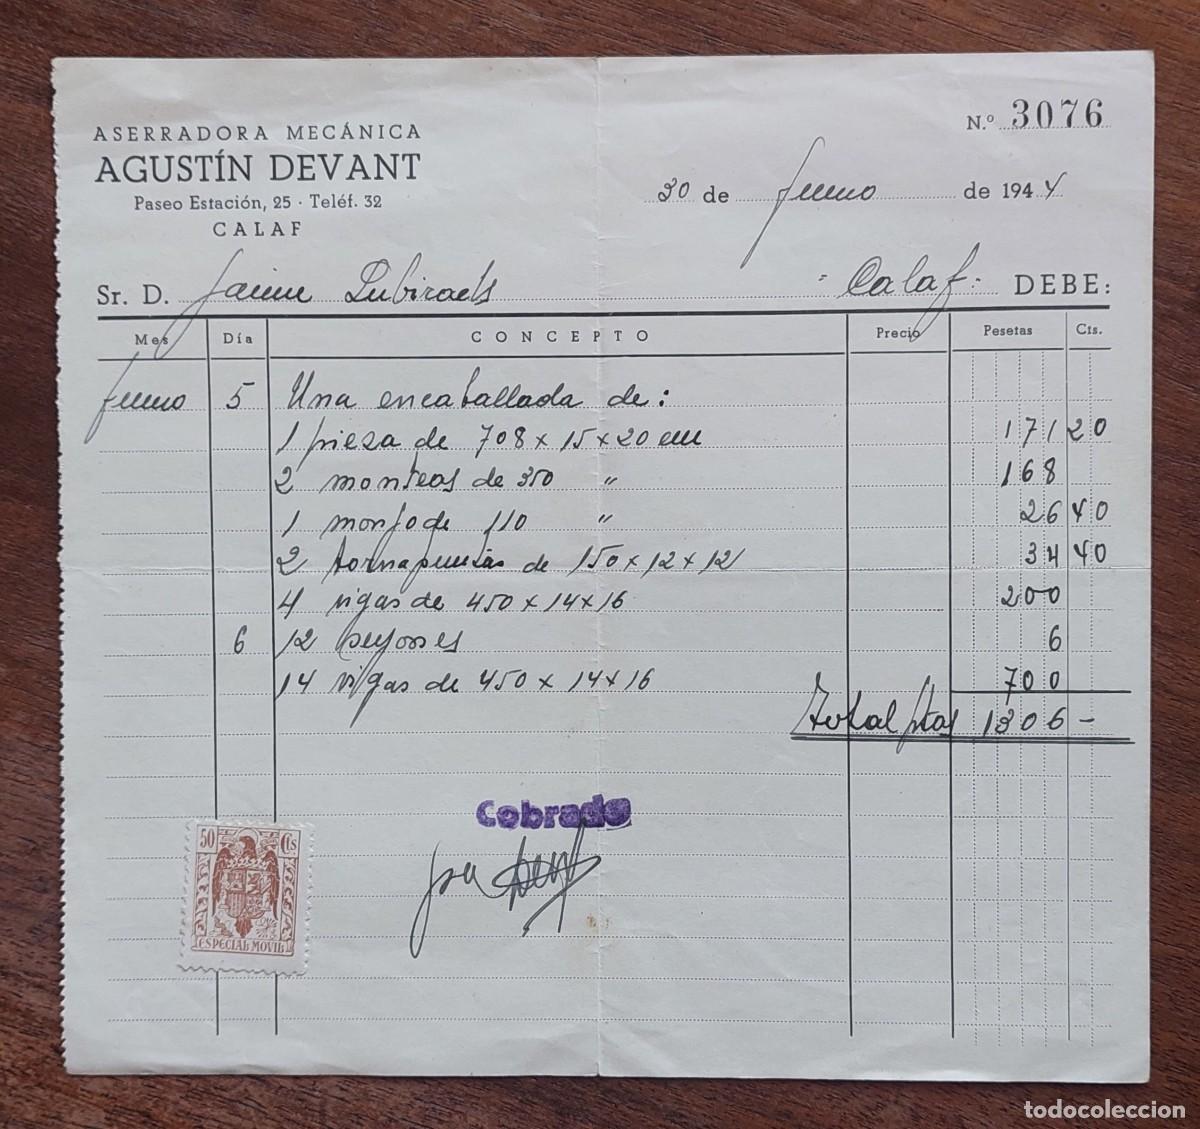 ASERRADORA MECÁNICA
AGUSTÍN DEVANT
Paseo Estación, 25 · Teléf. 32
CALAF
N.º 3076
30 de Junio de 1944
Sr. D. Jaime Lubiraels · Calaf · DEBE:
Mes Día CONCEPTO Precio Pesetas Cts.
Junio 5 Una encaballada de:
1 pieza de 708 x 15 x 20 cm 171 20
2 monteas de 350 " 168
1 monjo de 110 " 26 40
2 tornapuntas de 150 x 12 x 12 34 40
4 vigas de 450 x 14 x 16 200
6 12 6
14 vigas de 450 x 14 x 16 700
Total ptas 1306 -
Cobrado
50 Cts
ESPECIAL MOVIL
todocoleccion